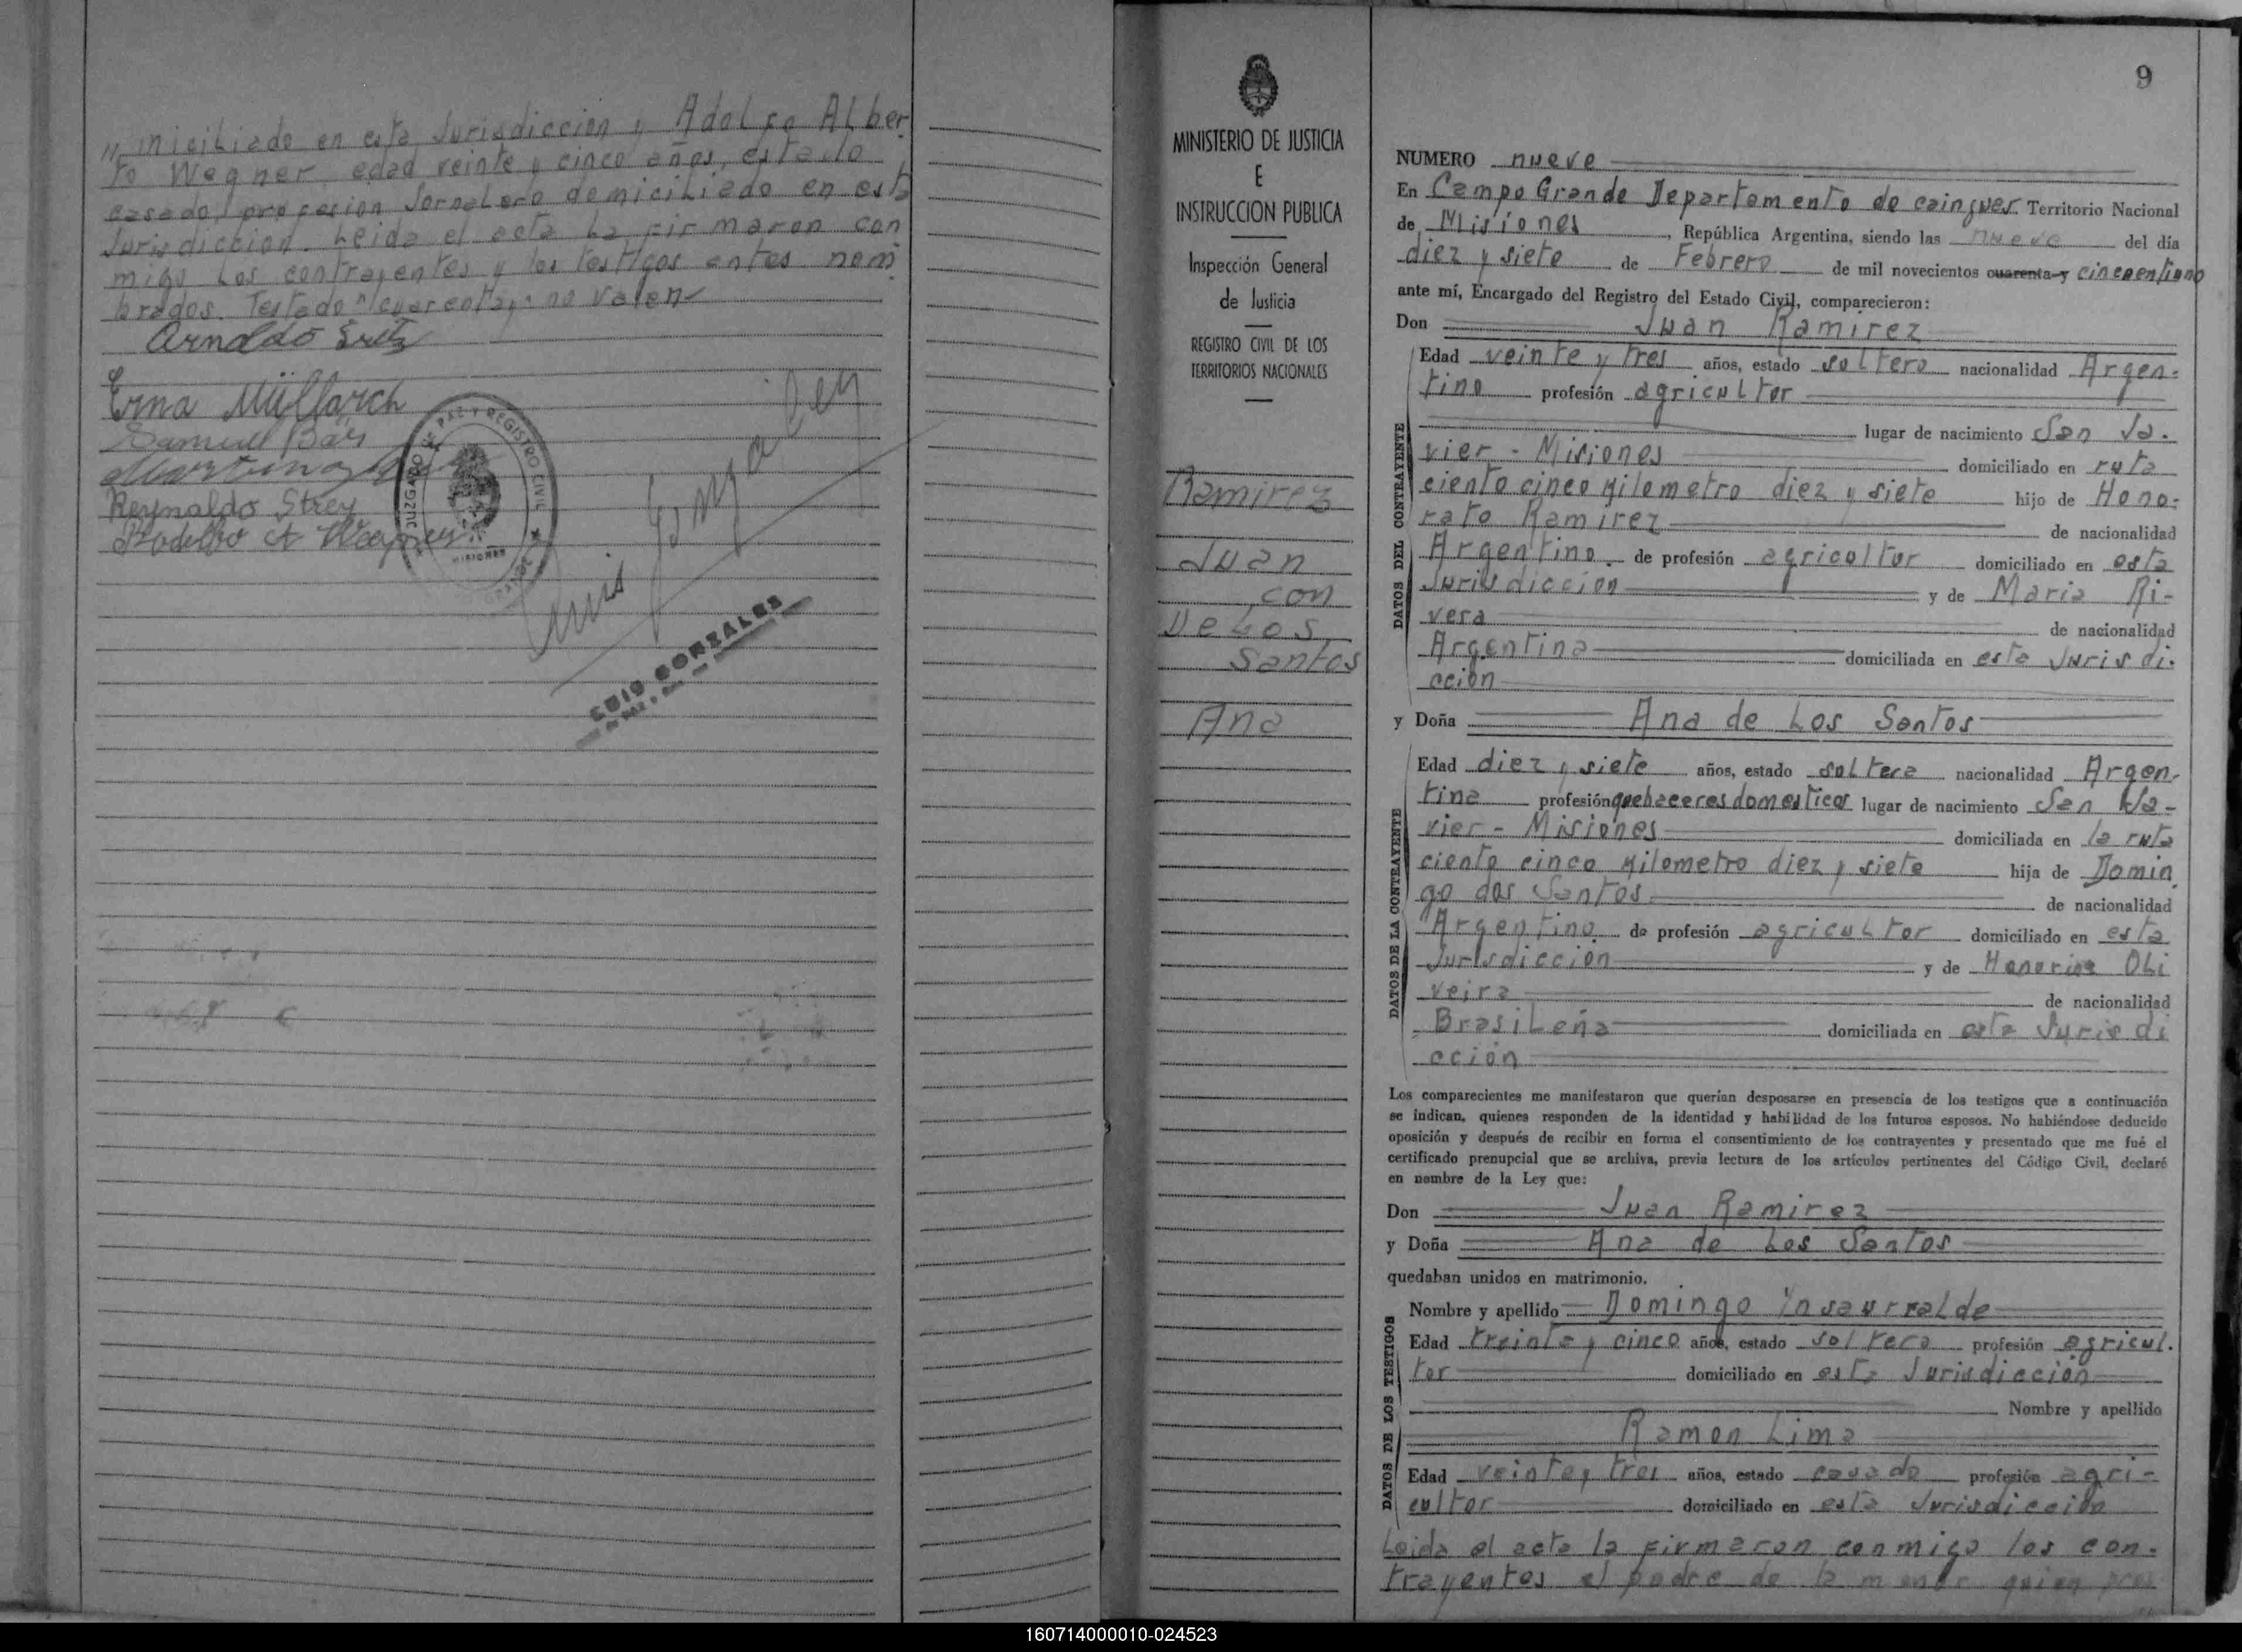 miciliado en esta Jurisdiccion y Adolfo Alber
to Wagner, edad veinte y cinco años, estado
casado, profesion Jornalero domiciliado en esta
Jurisdiccion. Leida el acta La firmaron con
migo Los contrayentes y los testigos antes nom
brados. Testado "cuarenta y" no valen
Arnaldo
Erna Müllarch
Samuel Bär
Reynaldo Strey
JUZGADO DE PAZ Y REGISTRO CIVIL
MISIONES
Luis
LUIS GONZALES
MINISTERIO DE JUSTICIA
E
INSTRUCCION PUBLICA
Inspección General
de Justicia
REGISTRO CIVIL DE LOS
TERRITORIOS NACIONALES
Ramirez
Juan
con
De Los
Santos
Ana
9
NUMERO nueve
En Campo Grande Departamento de cainguas Territorio Nacional
de Misiones, República Argentina, siendo las nueve del día
diez y siete de Febrero de mil novecientos cuarenta y cincuentiuno
ante mí, Encargado del Registro del Estado Civil, comparecieron:
Don Juan Ramirez
DATOS DEL CONTRAYENTE
Edad veinte y tres años, estado soltero nacionalidad Argen-
tino profesión agricultor
lugar de nacimiento San Ja-
vier - Misiones domiciliado en ruta
ciento cinco Kilometro diez y siete hijo de Hono-
rato Ramirez de nacionalidad
Argentino de profesión agricultor domiciliado en esta
Jurisdiccion y de Maria Ri-
vera de nacionalidad
Argentina domiciliada en esta Jurisdi-
cción
y Doña Ana de Los Santos
DATOS DE LA CONTRAYENTE
Edad diez y siete años, estado soltera nacionalidad Argen-
tina profesión quehaceres domesticos lugar de nacimiento San Ja-
vier - Misiones domiciliada en la ruta
ciento cinco Kilometro diez y siete hija de Domin
go dos Santos de nacionalidad
Argentino de profesión agricultor domiciliado en esta
Jurisdicción y de Honorina Oli
veira de nacionalidad
Brasileña domiciliada en esta Jurisdi
cción
Los comparecientes me manifestaron que querían desposarse en presencia de los testigos que a continuación
se indican, quienes responden de la identidad y habilidad de los futuros esposos. No habiéndose deducido
oposición y después de recibir en forma el consentimiento de los contrayentes y presentado que me fué el
certificado prenupcial que se archiva, previa lectura de los artículos pertinentes del Código Civil, declaré
en nombre de la Ley que:
Don Juan Ramirez
y Doña Ana de Los Santos
quedaban unidos en matrimonio.
DATOS DE LOS TESTIGOS
Nombre y apellido Domingo Ynsaurralde
Edad treinta y cinco años, estado soltero profesión agricul-
tor domiciliado en esta Jurisdicción
Nombre y apellido
Ramon Lima
Edad veinte y tres años, estado casado profesión agri-
cultor domiciliado en esta Jurisdicción
Leida el acta la firmaron conmigo los con-
trayentes el padre de la menor quien
160714000010-024523